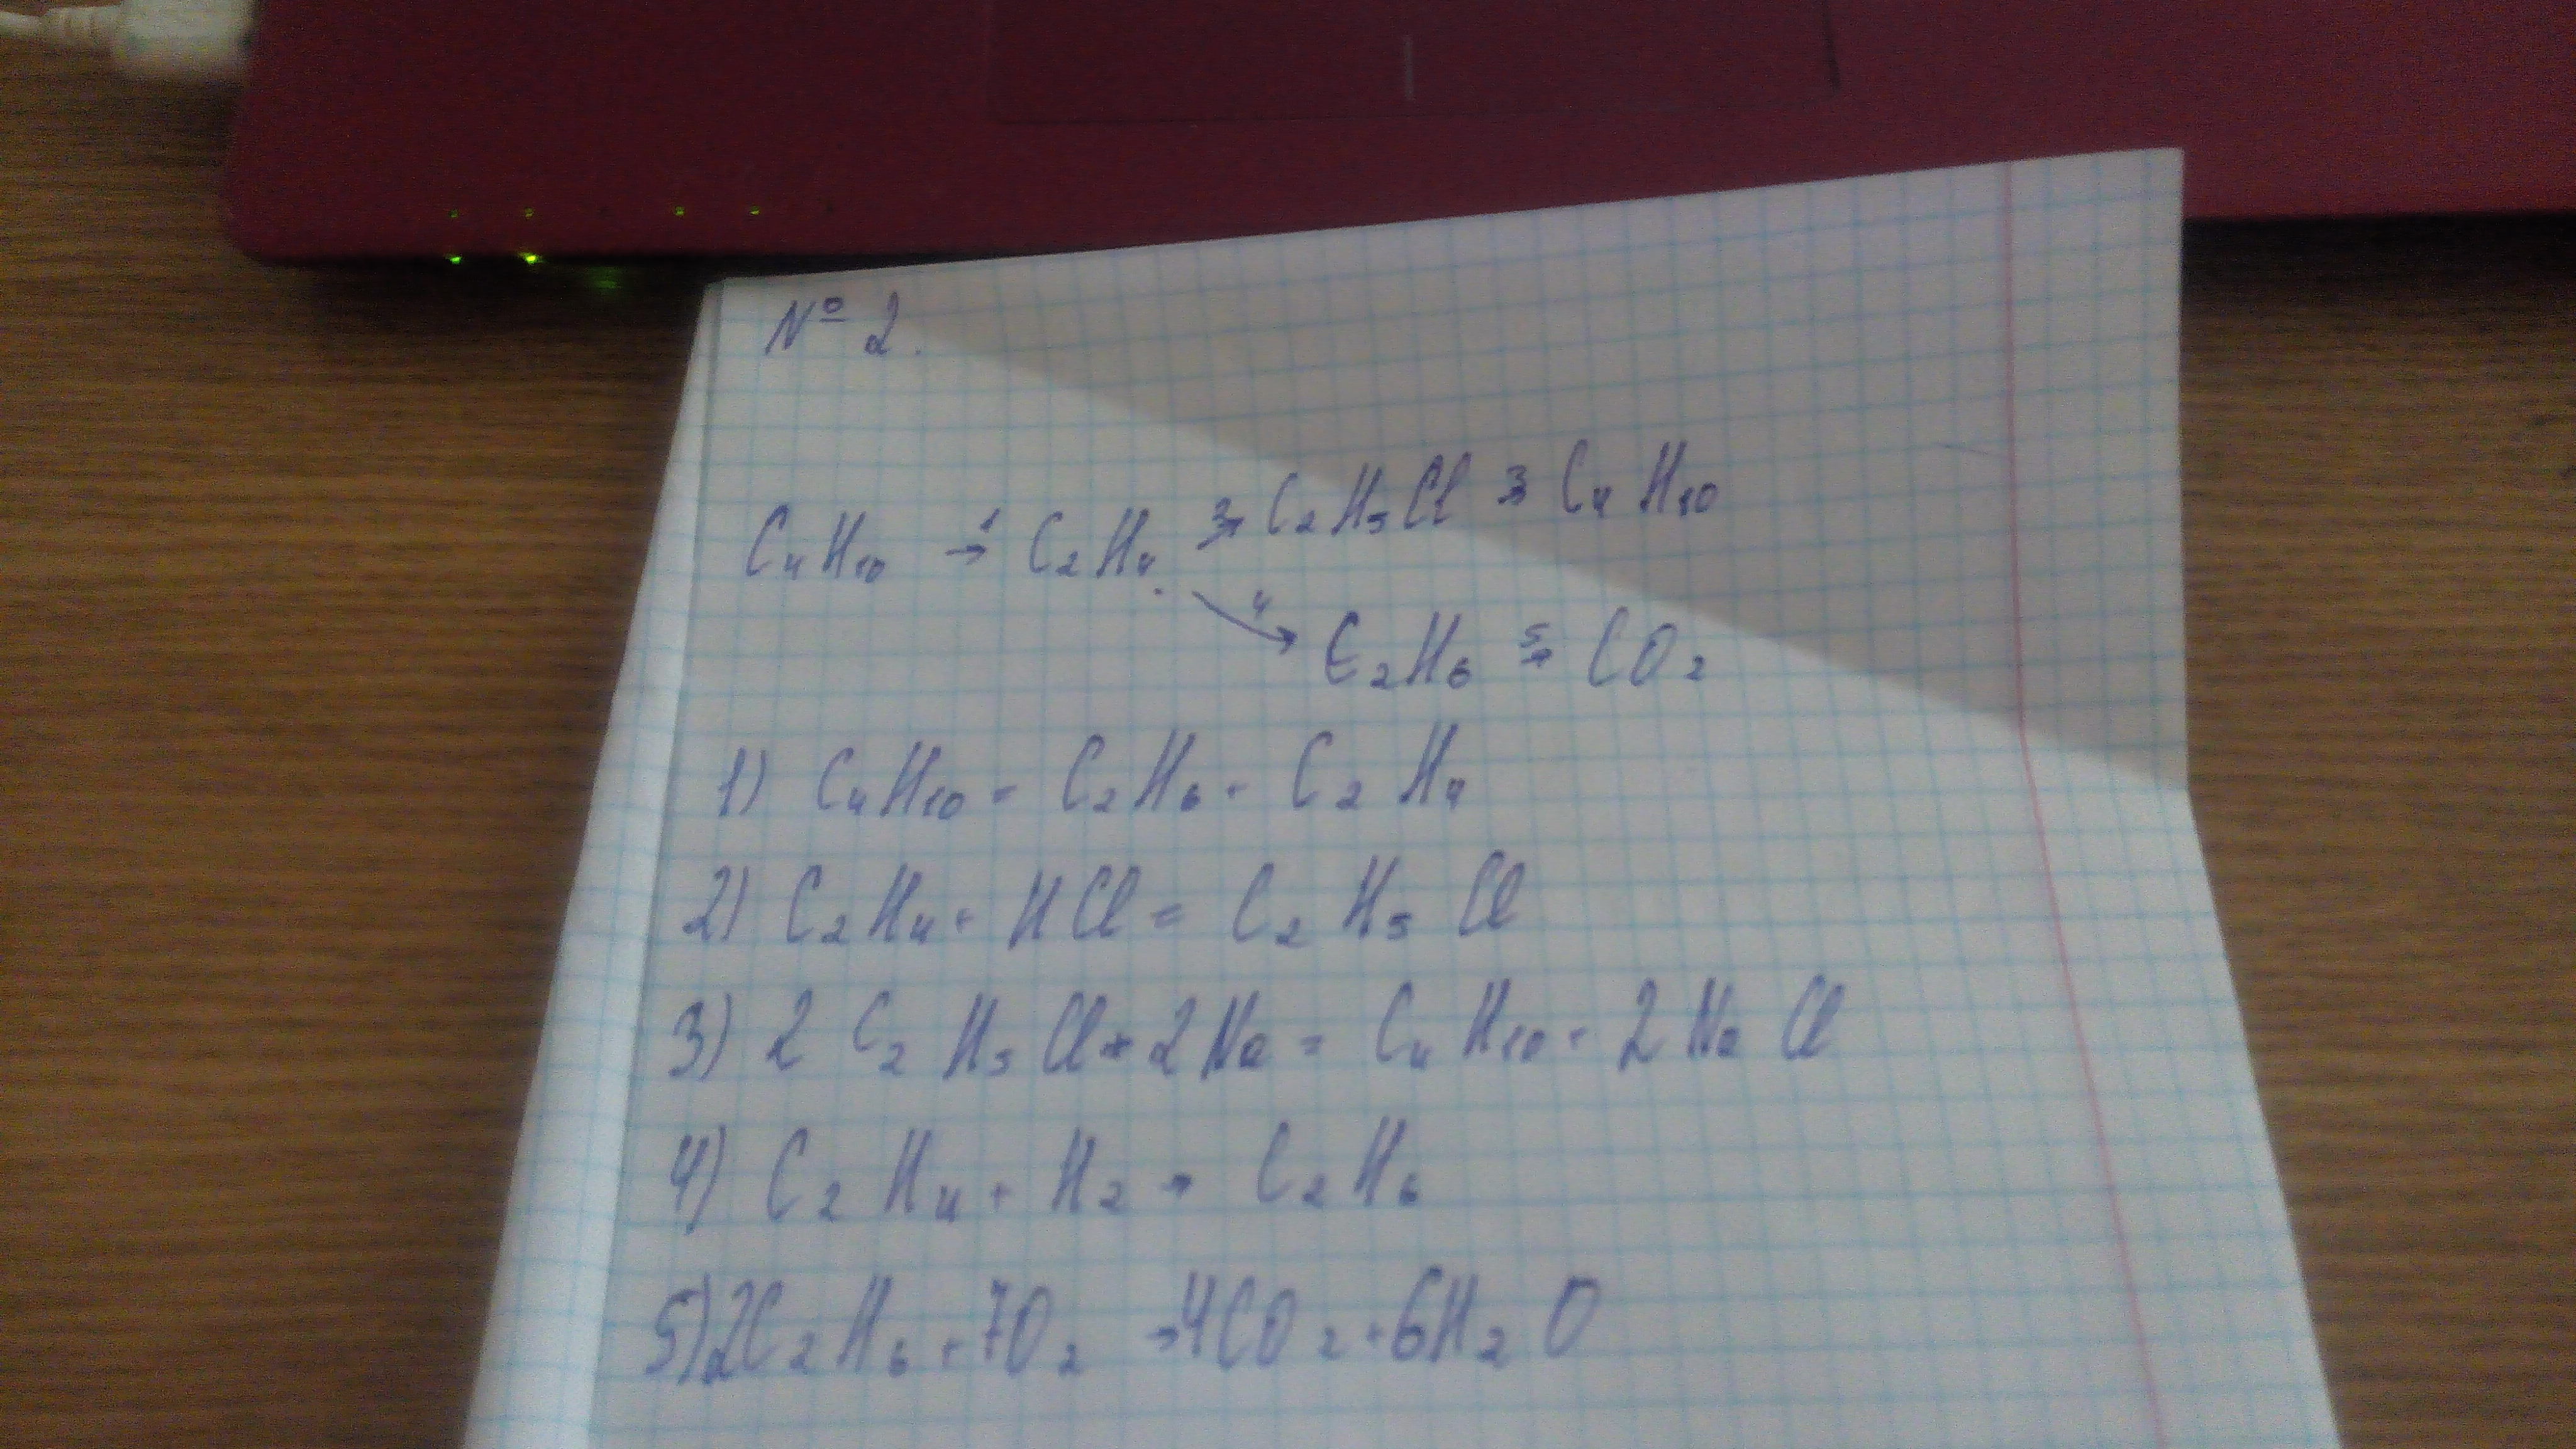 № 2.
C₄H₁₀ →¹ C₂H₄ →³ C₂H₅Cl →³ C₄H₁₀
→⁴ C₂H₆ →⁵ CO₂
1) C₄H₁₀ = C₂H₆ + C₂H₄
2) C₂H₄ + HCl = C₂H₅Cl
3) 2C₂H₅Cl + 2Na = C₄H₁₀ + 2NaCl
4) C₂H₄ + H₂ → C₂H₆
5) 2C₂H₆ + 7O₂ → 4CO₂ + 6H₂O